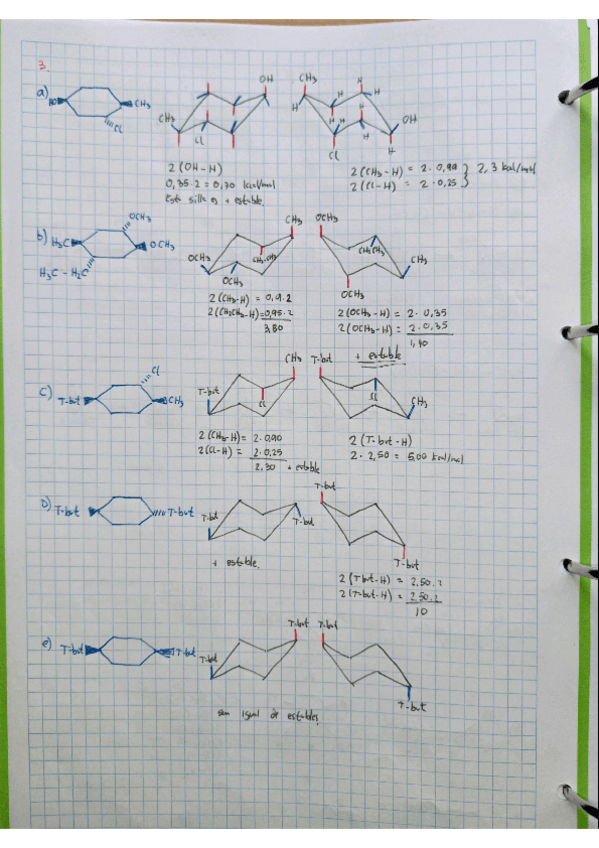 3.
a) HO CH₃ Cl
OH CH₃ Cl
CH₃ H H H H H H H OH Cl H
2 (OH-H)
0,35·2 = 0,70 kcal/mol
Esta silla es + estable.
2 (CH₃-H) = 2·0,90
2 (Cl-H) = 2·0,25
} 2,3 kcal/mol
b) H₃C OCH₃ OCH₃ H₃C-H₂C
CH₃ OCH₃ OCH₃
OCH₃ CH₃ OCH₃
2 (CH₃-H) = 0,9·2
2 (CH₂CH₃-H) = 0,95·2
3,80
2 (OCH₃-H) = 2·0,35
2 (OCH₃-H) = 2·0,35
1,40
+ estable
c) T-but Cl CH₃
T-but CH₃ Cl
T-but CH₃ Cl
2 (CH₃-H) = 2·0,90
2 (Cl-H) = 2·0,25
2,30 + estable
2 (T-but-H)
2·2,50 = 5,00 kcal/mol
D) T-but T-but
T-but T-but
T-but T-but
+ estable.
2 (T-but-H) = 2,50·2
2 (T-but-H) = 2,50·2
10
e) T-but T-but
T-but T-but
T-but T-but
son igual de estables.